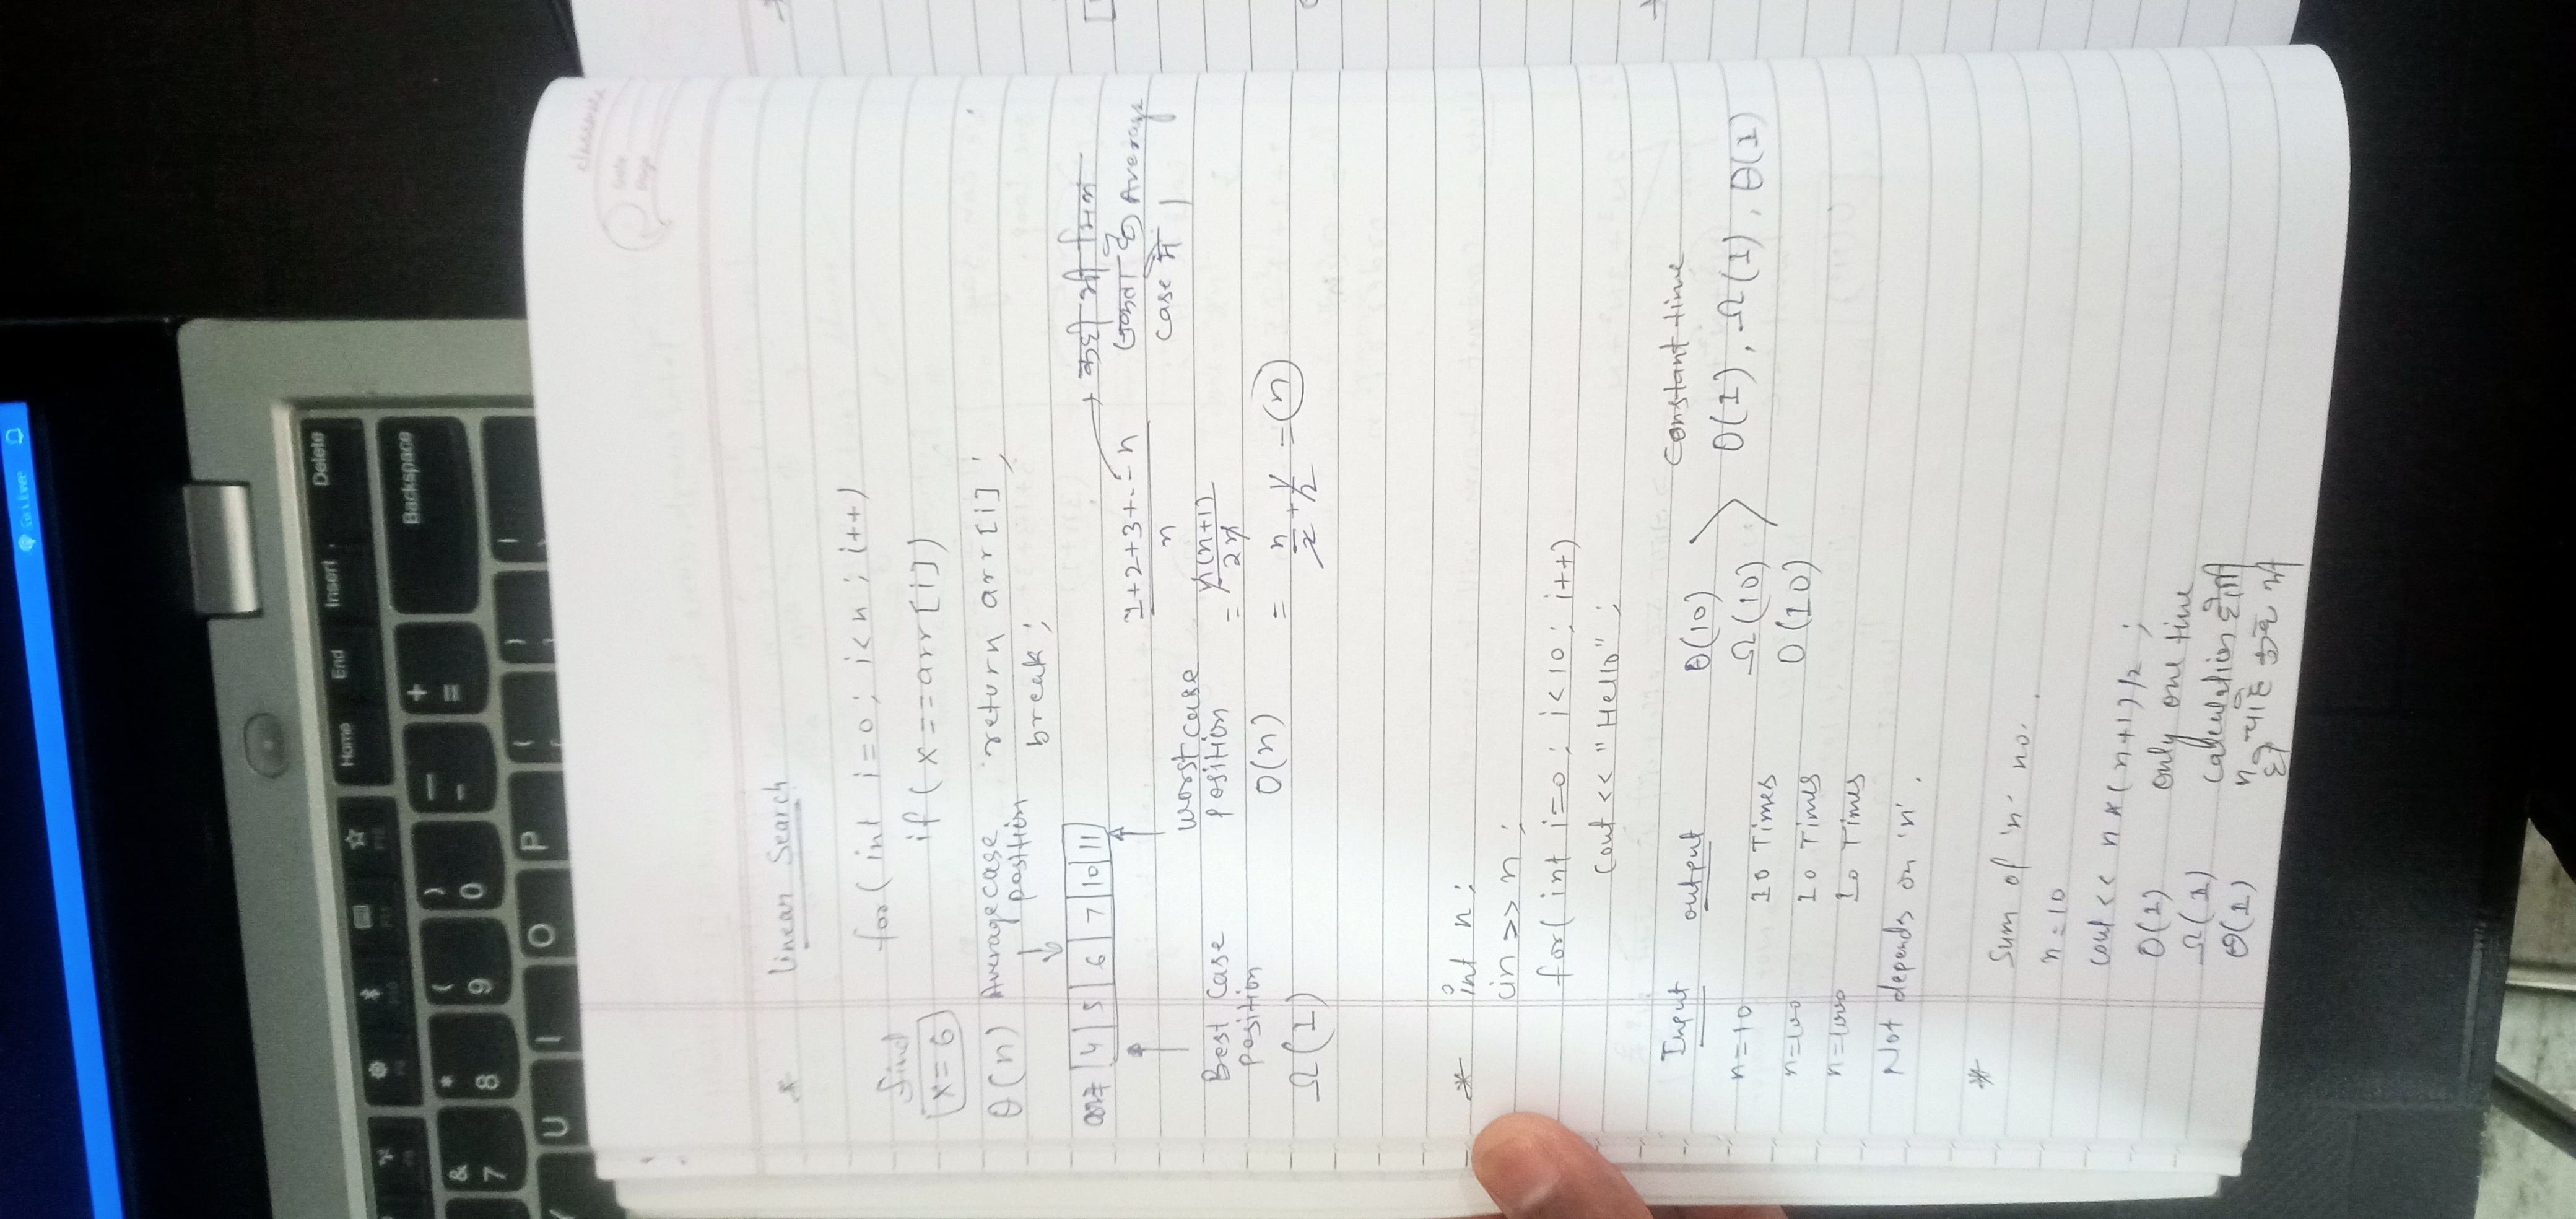 Home End Insert Delete
Backspace
& 7 * 8 ( 9 ) 0 — - + =
U I O P
classmate
Date
Page
* Linear Search
for( int i=0; i<n; i++)
find
x=6
if ( x==arr[i])
θ(n) Average case position
return arr[i];
break;
arr= 4 5 6 7 10 11
Best Case position
Ω(1)
worst case position
O(n)
1+2+3+...n
n
→ कही भी मिल
सकता है Average
case में।
= n(n+1)
2n
= n/2 + 1/2 = n
* int n;
cin >> n;
for( int i=0; i<10; i++)
cout << "Hello";
Input output
n=10 10 Times
n=100 10 Times
n=1000 10 Times
θ(10)
Ω(10)
O(10)
Constant time
O(1), Ω(1), θ(1)
Not depends on 'n'.
* Sum of 'n' no.
n=10
cout << n*(n+1)/2;
O(1) only one time
Ω(1) calculation होगी
θ(1) n चाहे कुछ भी
हो